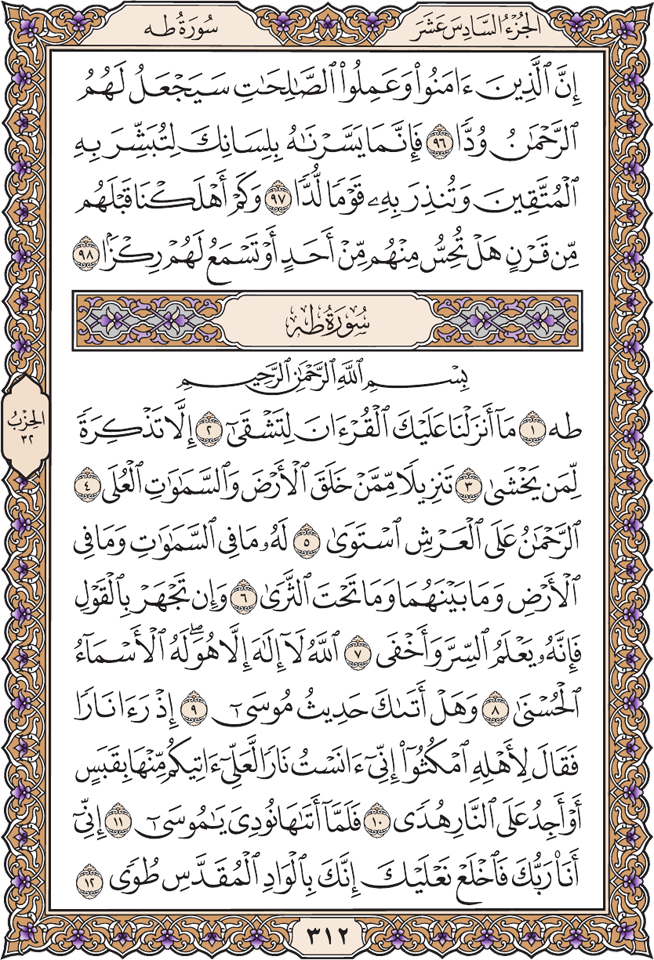 الجزء السادس عشر
سورة طه
إِنَّ ٱلَّذِينَ ءَامَنُوا۟ وَعَمِلُوا۟ ٱلصَّٰلِحَٰتِ سَيَجْعَلُ لَهُمُ
ٱلرَّحْمَٰنُ وُدًّا ٩٦ فَإِنَّمَا يَسَّرْنَٰهُ بِلِسَانِكَ لِتُبَشِّرَ بِهِ
ٱلْمُتَّقِينَ وَتُنذِرَ بِهِۦ قَوْمًا لُّدًّا ٩٧ وَكَمْ أَهْلَكْنَا قَبْلَهُم
مِّن قَرْنٍ هَلْ تُحِسُّ مِنْهُم مِّنْ أَحَدٍ أَوْ تَسْمَعُ لَهُمْ رِكْزًۢا ٩٨
سُورَةُ طه
بِسْمِ ٱللَّهِ ٱلرَّحْمَٰنِ ٱلرَّحِيمِ
طه ١ مَآ أَنزَلْنَا عَلَيْكَ ٱلْقُرْءَانَ لِتَشْقَىٰٓ ٢ إِلَّا تَذْكِرَةً
لِّمَن يَخْشَىٰ ٣ تَنزِيلًا مِّمَّنْ خَلَقَ ٱلْأَرْضَ وَٱلسَّمَٰوَٰتِ ٱلْعُلَى ٤
ٱلرَّحْمَٰنُ عَلَى ٱلْعَرْشِ ٱسْتَوَىٰ ٥ لَهُۥ مَا فِى ٱلسَّمَٰوَٰتِ وَمَا فِى
ٱلْأَرْضِ وَمَا بَيْنَهُمَا وَمَا تَحْتَ ٱلثَّرَىٰ ٦ وَإِن تَجْهَرْ بِٱلْقَوْلِ
فَإِنَّهُۥ يَعْلَمُ ٱلسِّرَّ وَأَخْفَى ٧ ٱللَّهُ لَآ إِلَٰهَ إِلَّا هُوَۖ لَهُ ٱلْأَسْمَآءُ
ٱلْحُسْنَىٰ ٨ وَهَلْ أَتَىٰكَ حَدِيثُ مُوسَىٰٓ ٩ إِذْ رَءَا نَارًا
فَقَالَ لِأَهْلِهِ ٱمْكُثُوٓا۟ إِنِّىٓ ءَانَسْتُ نَارًا لَّعَلِّىٓ ءَاتِيكُم مِّنْهَا بِقَبَسٍ
أَوْ أَجِدُ عَلَى ٱلنَّارِ هُدًى ١٠ فَلَمَّآ أَتَىٰهَا نُودِىَ يَٰمُوسَىٰٓ ١١ إِنِّىٓ
أَنَا۠ رَبُّكَ فَٱخْلَعْ نَعْلَيْكَ إِنَّكَ بِٱلْوَادِ ٱلْمُقَدَّسِ طُوًى ١٢
الحزب
٣٢
٣١٢